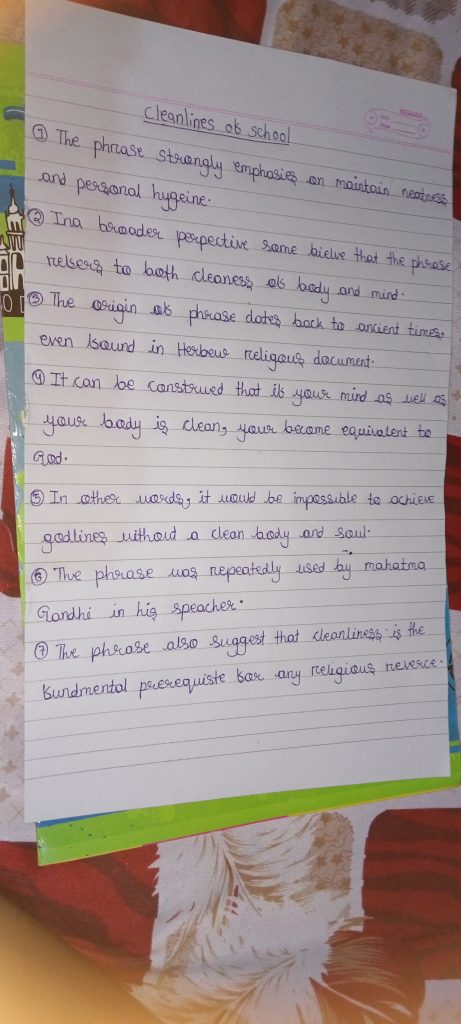 Cleanlines of school
① The phrase strongly emphasies on maintain neatness
and personal hygeine.
② Ina broader perpective some bielve that the phrase
refsers to both cleaness of body and mind.
③ The origin of phrase dates back to ancient times,
even found in Herbew religous document.
④ It can be construed that if your mind as well as
your body is clean, your become equivalent to
God.
⑤ In other words, it would be impossible to achieve
godlines without a clean body and soul.
⑥ The phrase was repeatedly used by mahatma
Gandhi in his speacher.
⑦ The phrase also suggest that cleanliness is the
fundmental prerequiste for any religious reverce.